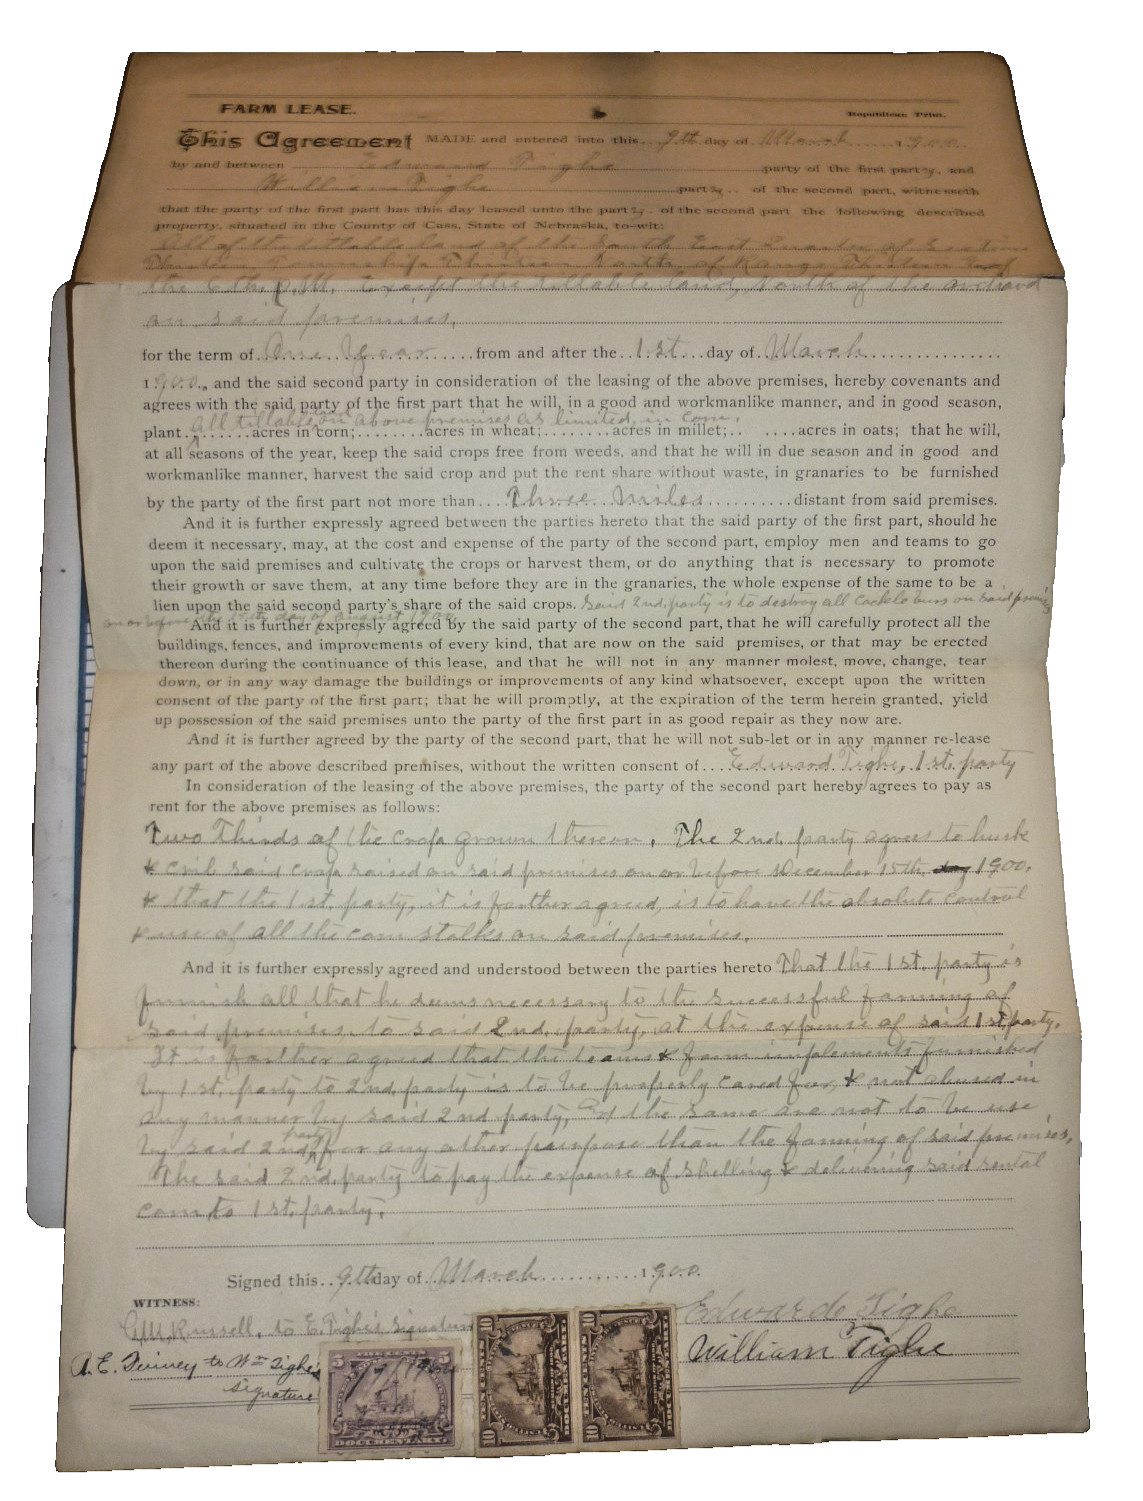 FARM LEASE.
Republican Print.
This Agreement MADE and entered into this 9th day of March 1900
by and between Edward Tighe party of the first party, and
William Tighe party of the second part, witnesseth
that the party of the first part has this day leased unto the party of the second part the following described
property, situated in the County of Cass, State of Nebraska, to-wit:
All of the tillable land of the South East Quarter of Section
Thirteen Township Thirteen North of Range Thirteen East of
the 6th. P.M. Except the tillable land, North of the orchard
on said premises.
for the term of One Year from and after the 1st day of March
1900, and the said second party in consideration of the leasing of the above premises, hereby covenants and
agrees with the said party of the first part that he will, in a good and workmanlike manner, and in good season,
All tillable land on above premises as limited, in corn.
plant acres in corn; acres in wheat; acres in millet; acres in oats; that he will,
at all seasons of the year, keep the said crops free from weeds, and that he will in due season and in good and
workmanlike manner, harvest the said crop and put the rent share without waste, in granaries to be furnished
by the party of the first part not more than Three Miles distant from said premises.
And it is further expressly agreed between the parties hereto that the said party of the first part, should he
deem it necessary, may, at the cost and expense of the party of the second part, employ men and teams to go
upon the said premises and cultivate the crops or harvest them, or do anything that is necessary to promote
their growth or save them, at any time before they are in the granaries, the whole expense of the same to be a
lien upon the said second party's share of the said crops. Said 2nd. party is to destroy all Cockle burs on said premises
on or before the day of August 1900
And it is further expressly agreed by the said party of the second part, that he will carefully protect all the
buildings, fences, and improvements of every kind, that are now on the said premises, or that may be erected
thereon during the continuance of this lease, and that he will not in any manner molest, move, change, tear
down, or in any way damage the buildings or improvements of any kind whatsoever, except upon the written
consent of the party of the first part; that he will promptly, at the expiration of the term herein granted, yield
up possession of the said premises unto the party of the first part in as good repair as they now are.
And it is further agreed by the party of the second part, that he will not sub-let or in any manner re-lease
any part of the above described premises, without the written consent of Edward Tighe, 1st. party
In consideration of the leasing of the above premises, the party of the second part hereby agrees to pay as
rent for the above premises as follows:
Two Thirds of the crop grown thereon. The 2nd. party agrees to husk
& crib said crop raised on said premises on or before December 15th, 1900.
& that the 1st. party, it is farther agreed, is to have the absolute control
& use of all the corn stalks on said premises.
And it is further expressly agreed and understood between the parties hereto That the 1st. party is
furnish all that he deems necessary to the successful farming of
said premises, to said 2nd. party, at the expense of said 1st party.
It is farther agreed that the teams & farm implements furnished
by 1st. party to 2nd. party is to be properly cared for, & not abused in
any manner by said 2nd party, the same are not to be use
by said 2nd party for any other purpose than the farming of said premises.
The said 2nd. party to pay the expense of shelling & delivering said rental
corn to 1st. party.
Signed this 9th day of March 1900.
WITNESS:
C.M. Russell, to E. Tighe's Signature
Edwarde Tighe
A. E. to Wm Tighe's
signature
William Tighe
5 5
DOCUMENTARY
10 10
TEN CENTS
DOCUMENTARY
10 10
TEN CENTS
DOCUMENTARY